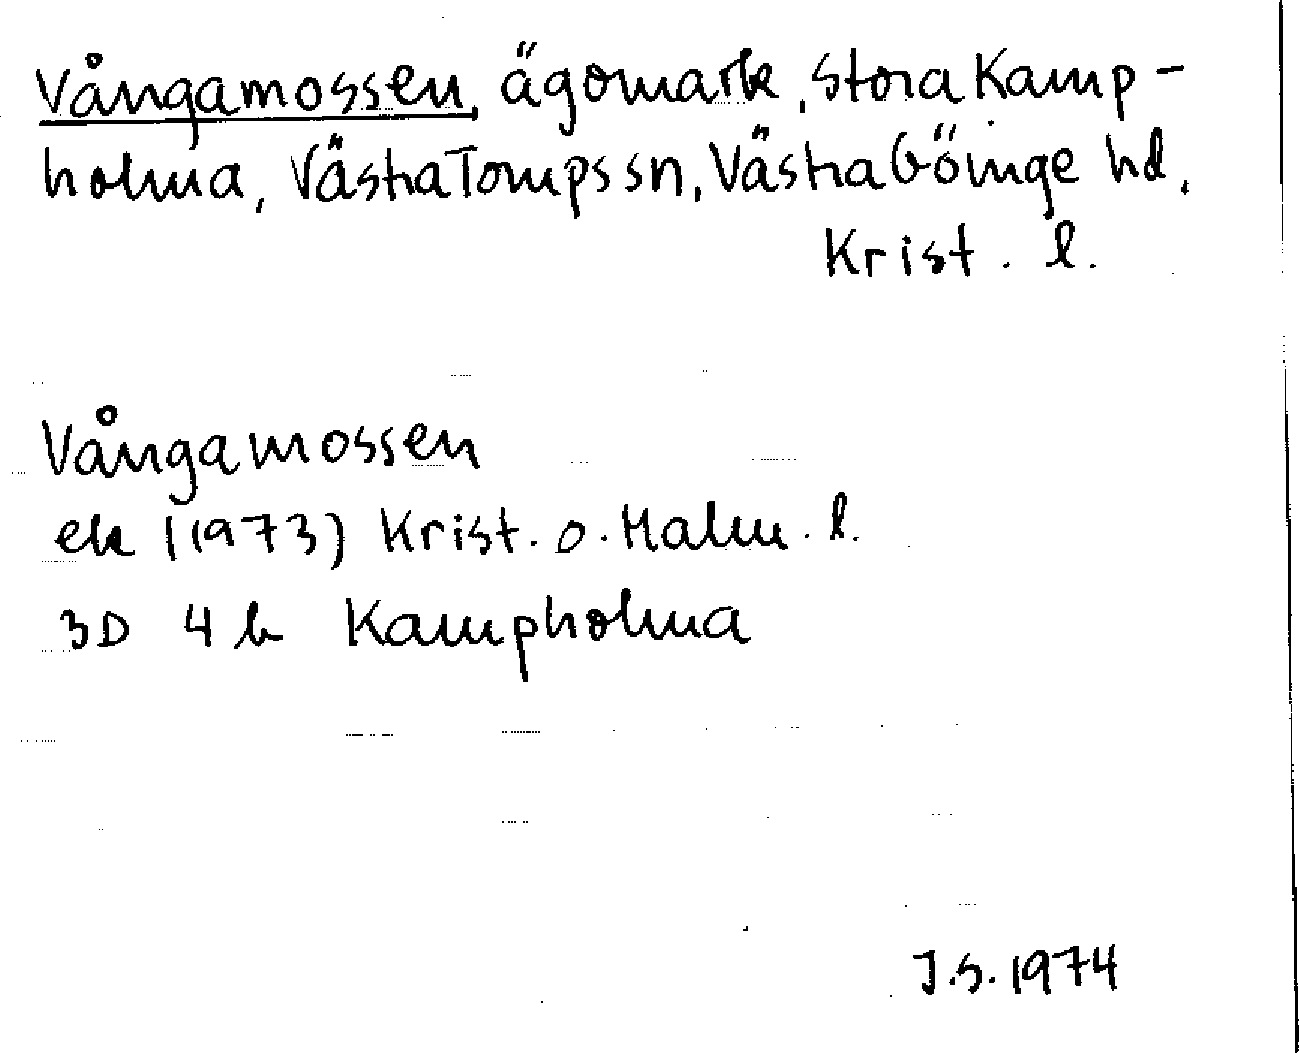 Vångamossen, ägomark, Stora Kamp-
holma, Västra Torups sn, Västra Göinge hd,
Krist. l.
Vångamossen
ek (1973) Krist. o. Malm. l.
3D 4 b Kampholma
J.S. 1974